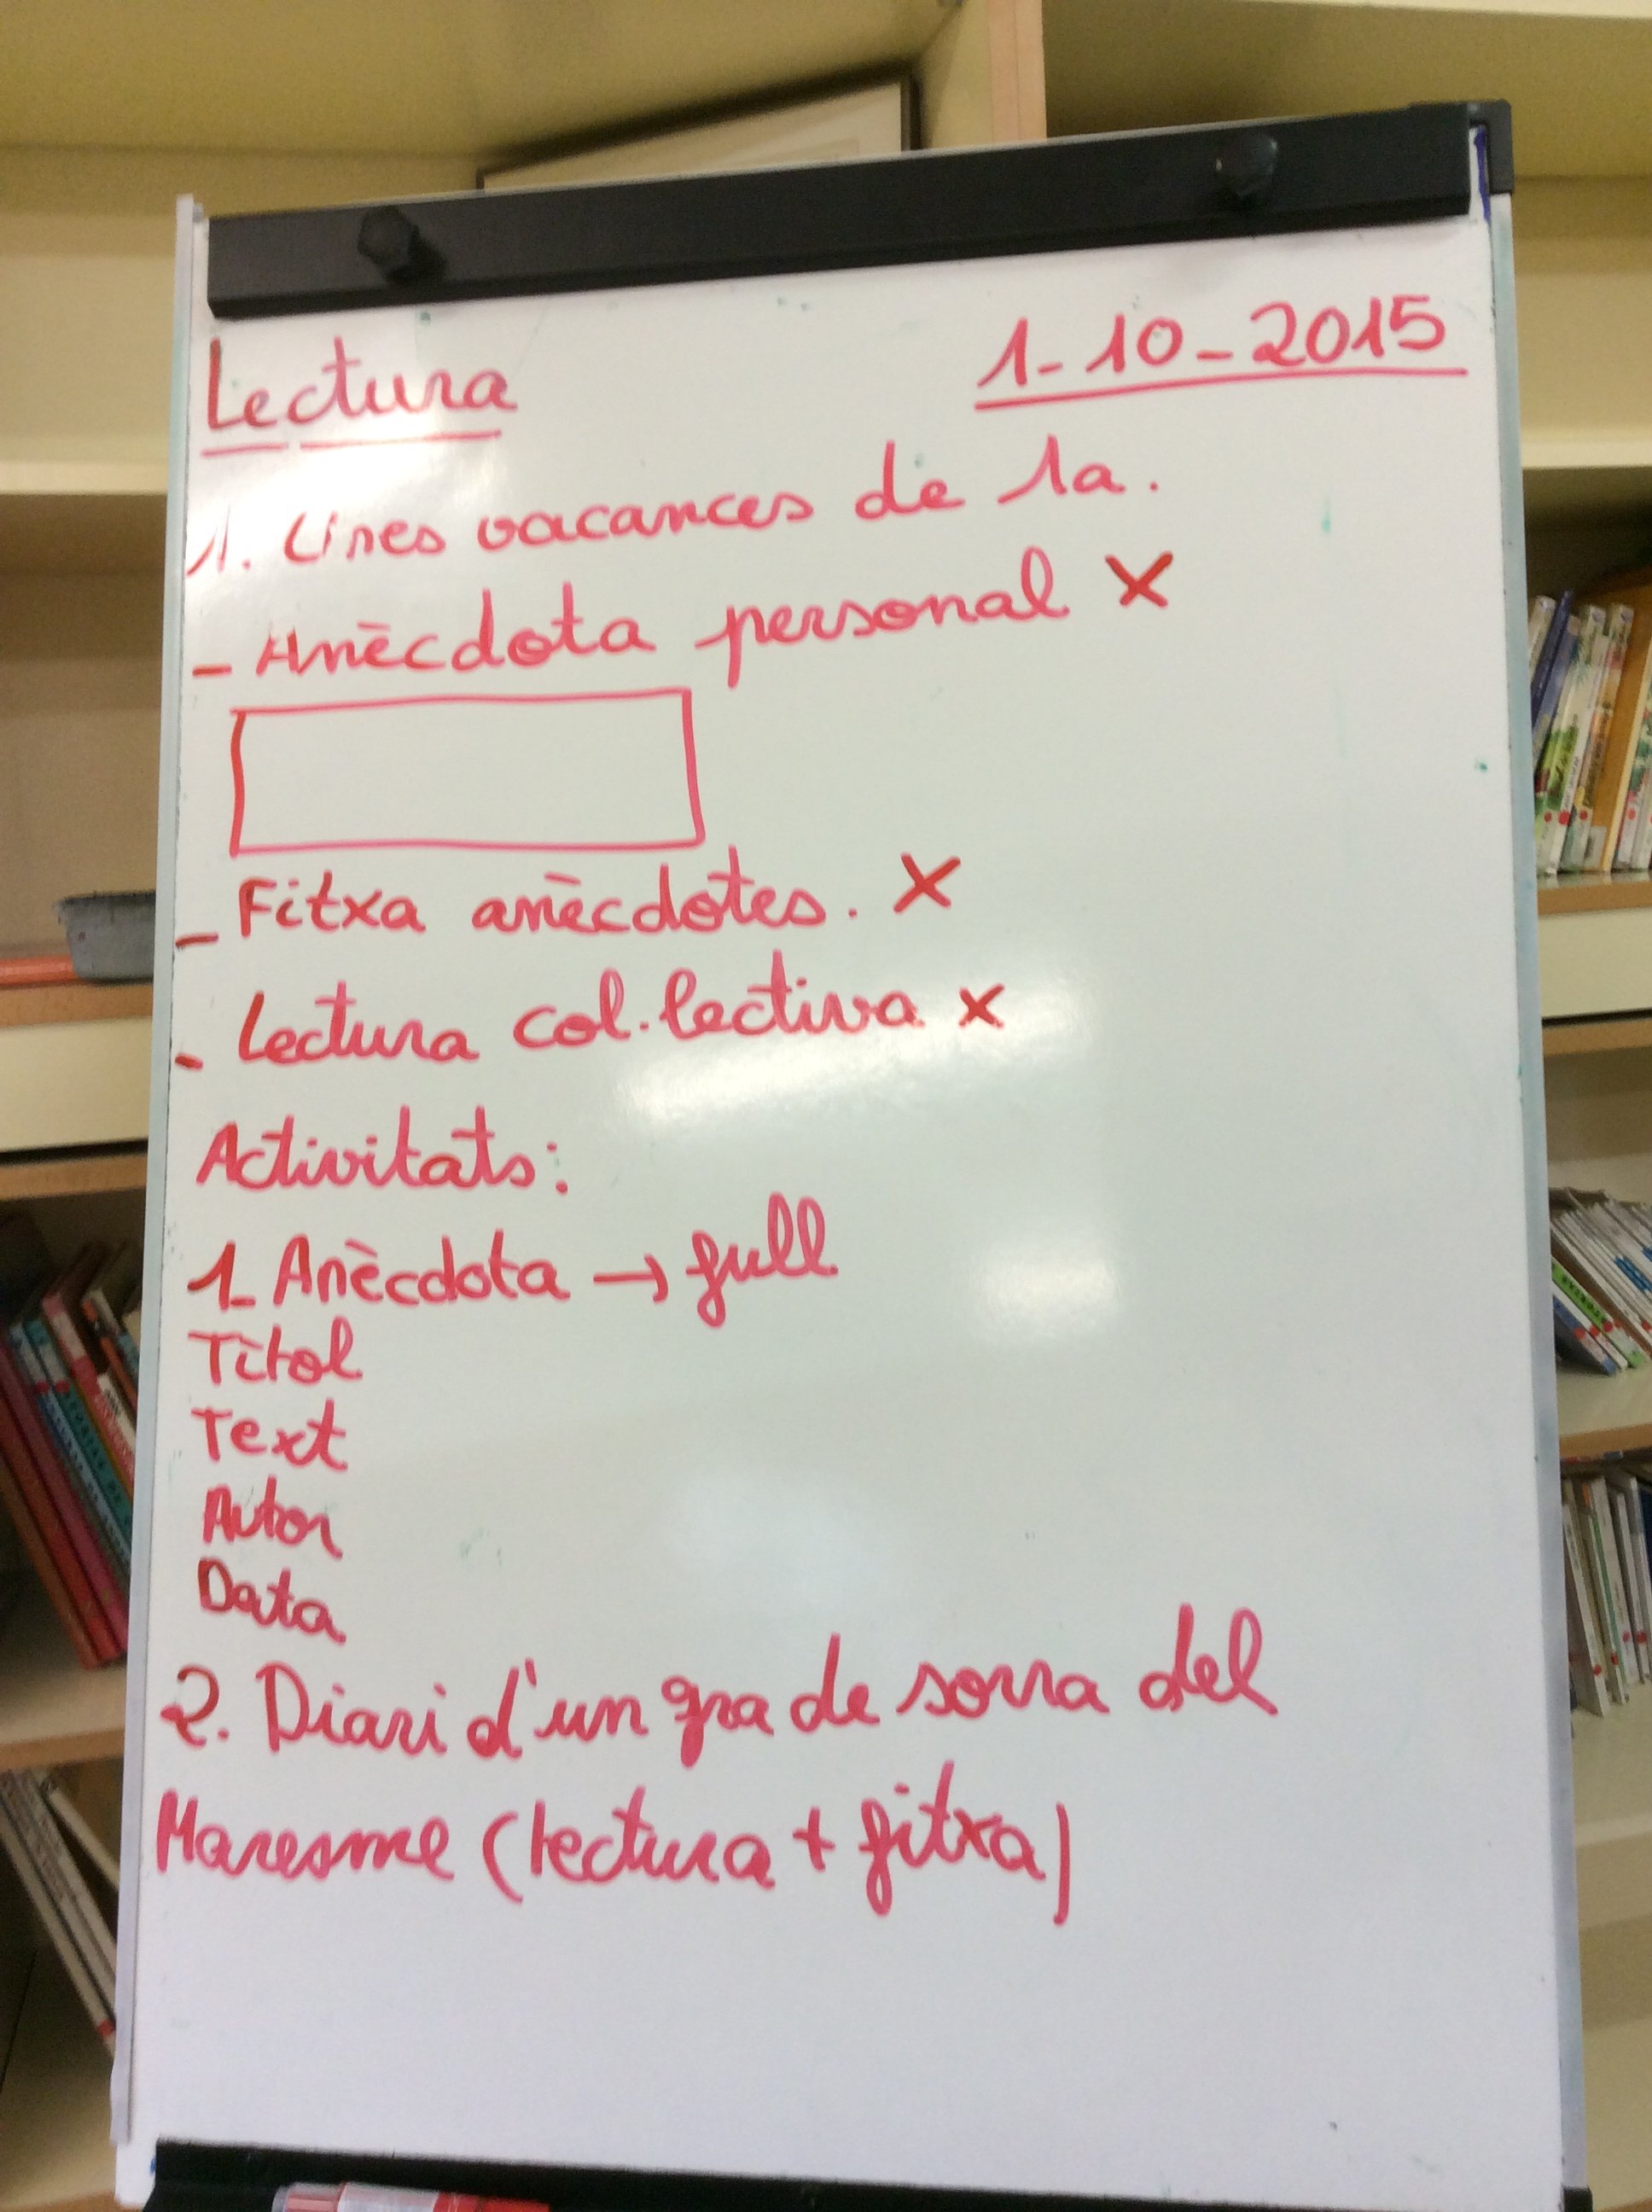 Lectura 1-10-2015
1. Unes vacances de 1a.
- Anècdota personal X
- Fitxa anècdotes. X
- Lectura col·lectiva x
Activitats:
1_ Anècdota → full
Títol
Text
Autor
Data
2. Diari d'un gra de sorra del
Maresme (lectura + fitxa)